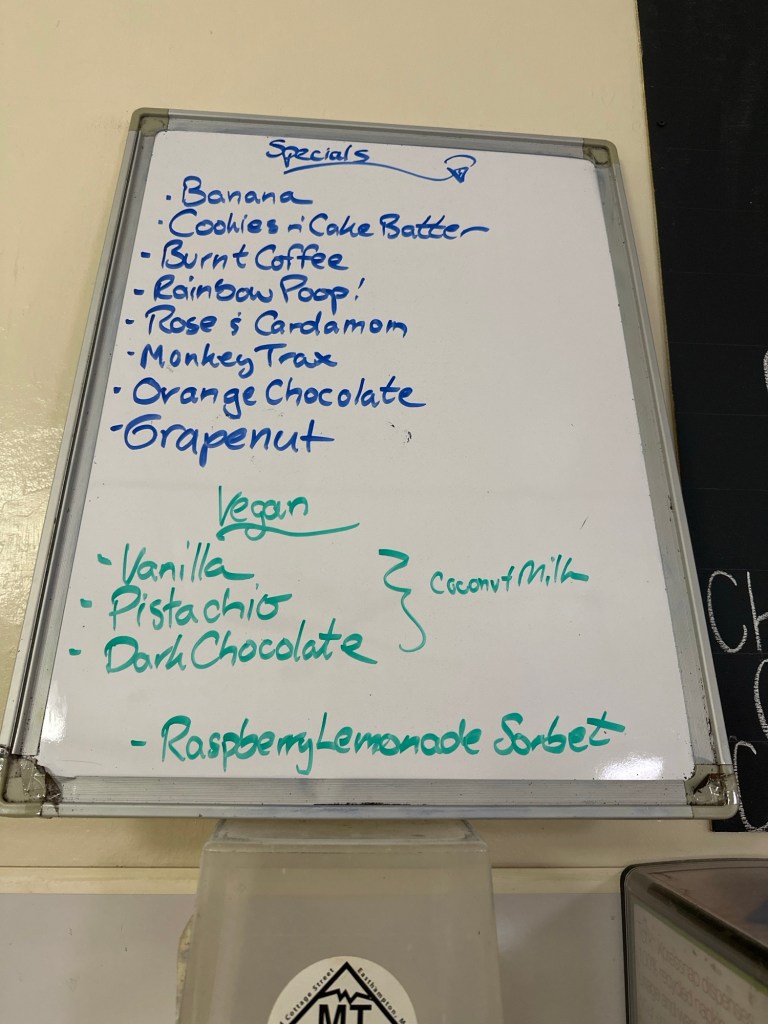 Specials
· Banana
· Cookies n' Cake Batter
- Burnt Coffee
- Rainbow Poop!
- Rose & Cardamom
· Monkey Trax
· Orange Chocolate
· Grapenut
Vegan
- Vanilla
- Pistachio
- Dark Chocolate
} Coconut Milk
- Raspberry Lemonade Sorbet
Ch
C
Cottage Street
Easthampton, M
MT